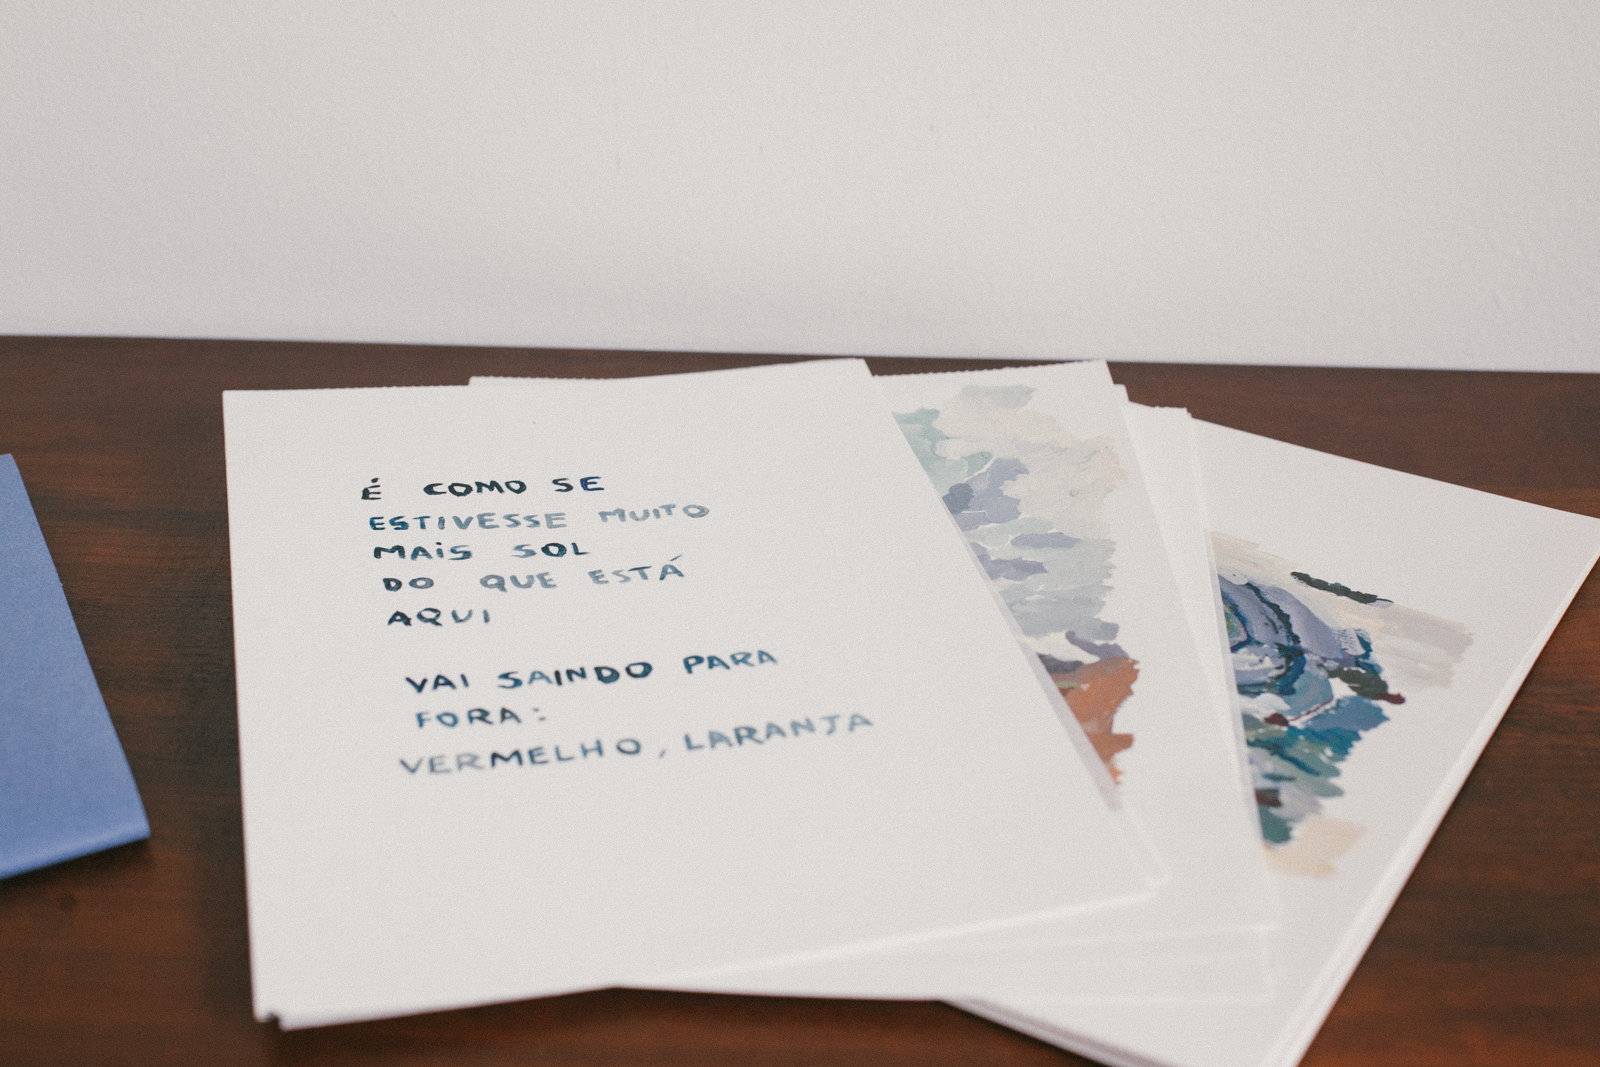 É COMO SE
ESTIVESSE MUITO
MAiS SOL
DO QUE ESTÁ
AQUI
VAI SAINDO PARA
FORA:
VERMELHO, LARANJA